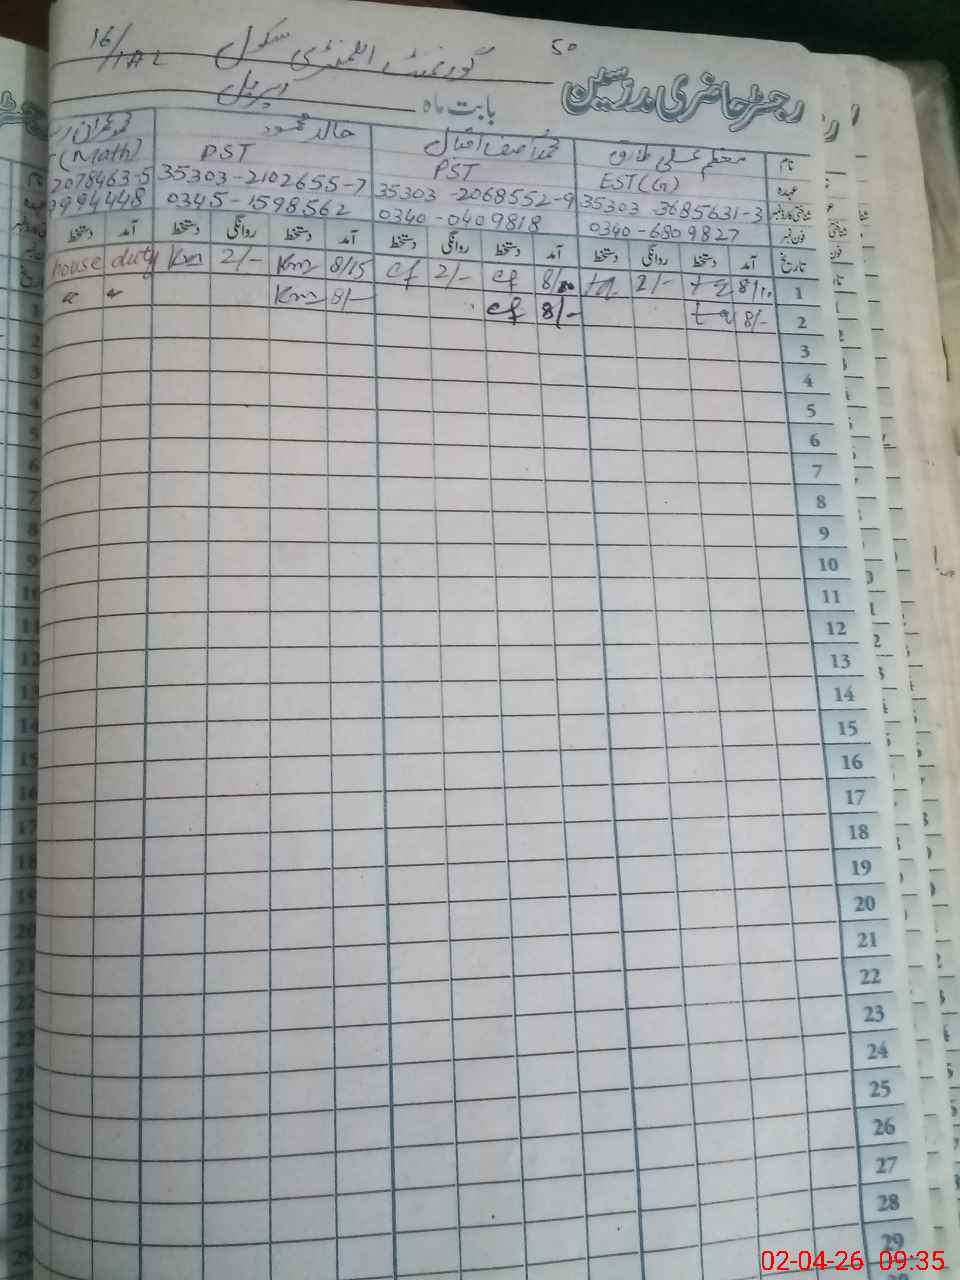 50 گورنمنٹ ایلیمنٹری سکول 16/1AL
رجسٹر حاضری مدرسین
بابت ماہ اپریل
نام معظم علی طارق محمد آصف اقبال خالد محمود محمد عمران
عہدہ EST(G) PST PST (Math)
35303-3685631-3 35303-2068552-9 35303-2102655-7 2078463-5
فون نمبر 0340-6809827 0340-0409818 0345-1598562 9994448
تاریخ آمد دستخط روانگی دستخط آمد دستخط روانگی دستخط آمد دستخط روانگی دستخط آمد دستخط
1 8/10 tq 2/- tq 8/00 cf 2/- cf 8/15 Km 2/- Km house duty
2 8/- tq 8/- cf 8/- Km " "
3
4
5
6
7
8
9
10
11
12
13
14
15
16
17
18
19
20
21
22
23
24
25
26
27
28
29
02-04-26 09:35